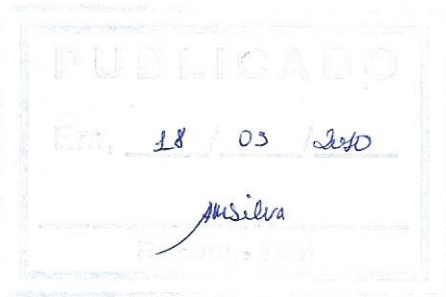 PUBLICADO
Em, 18 / 03 / 2010
Responsável